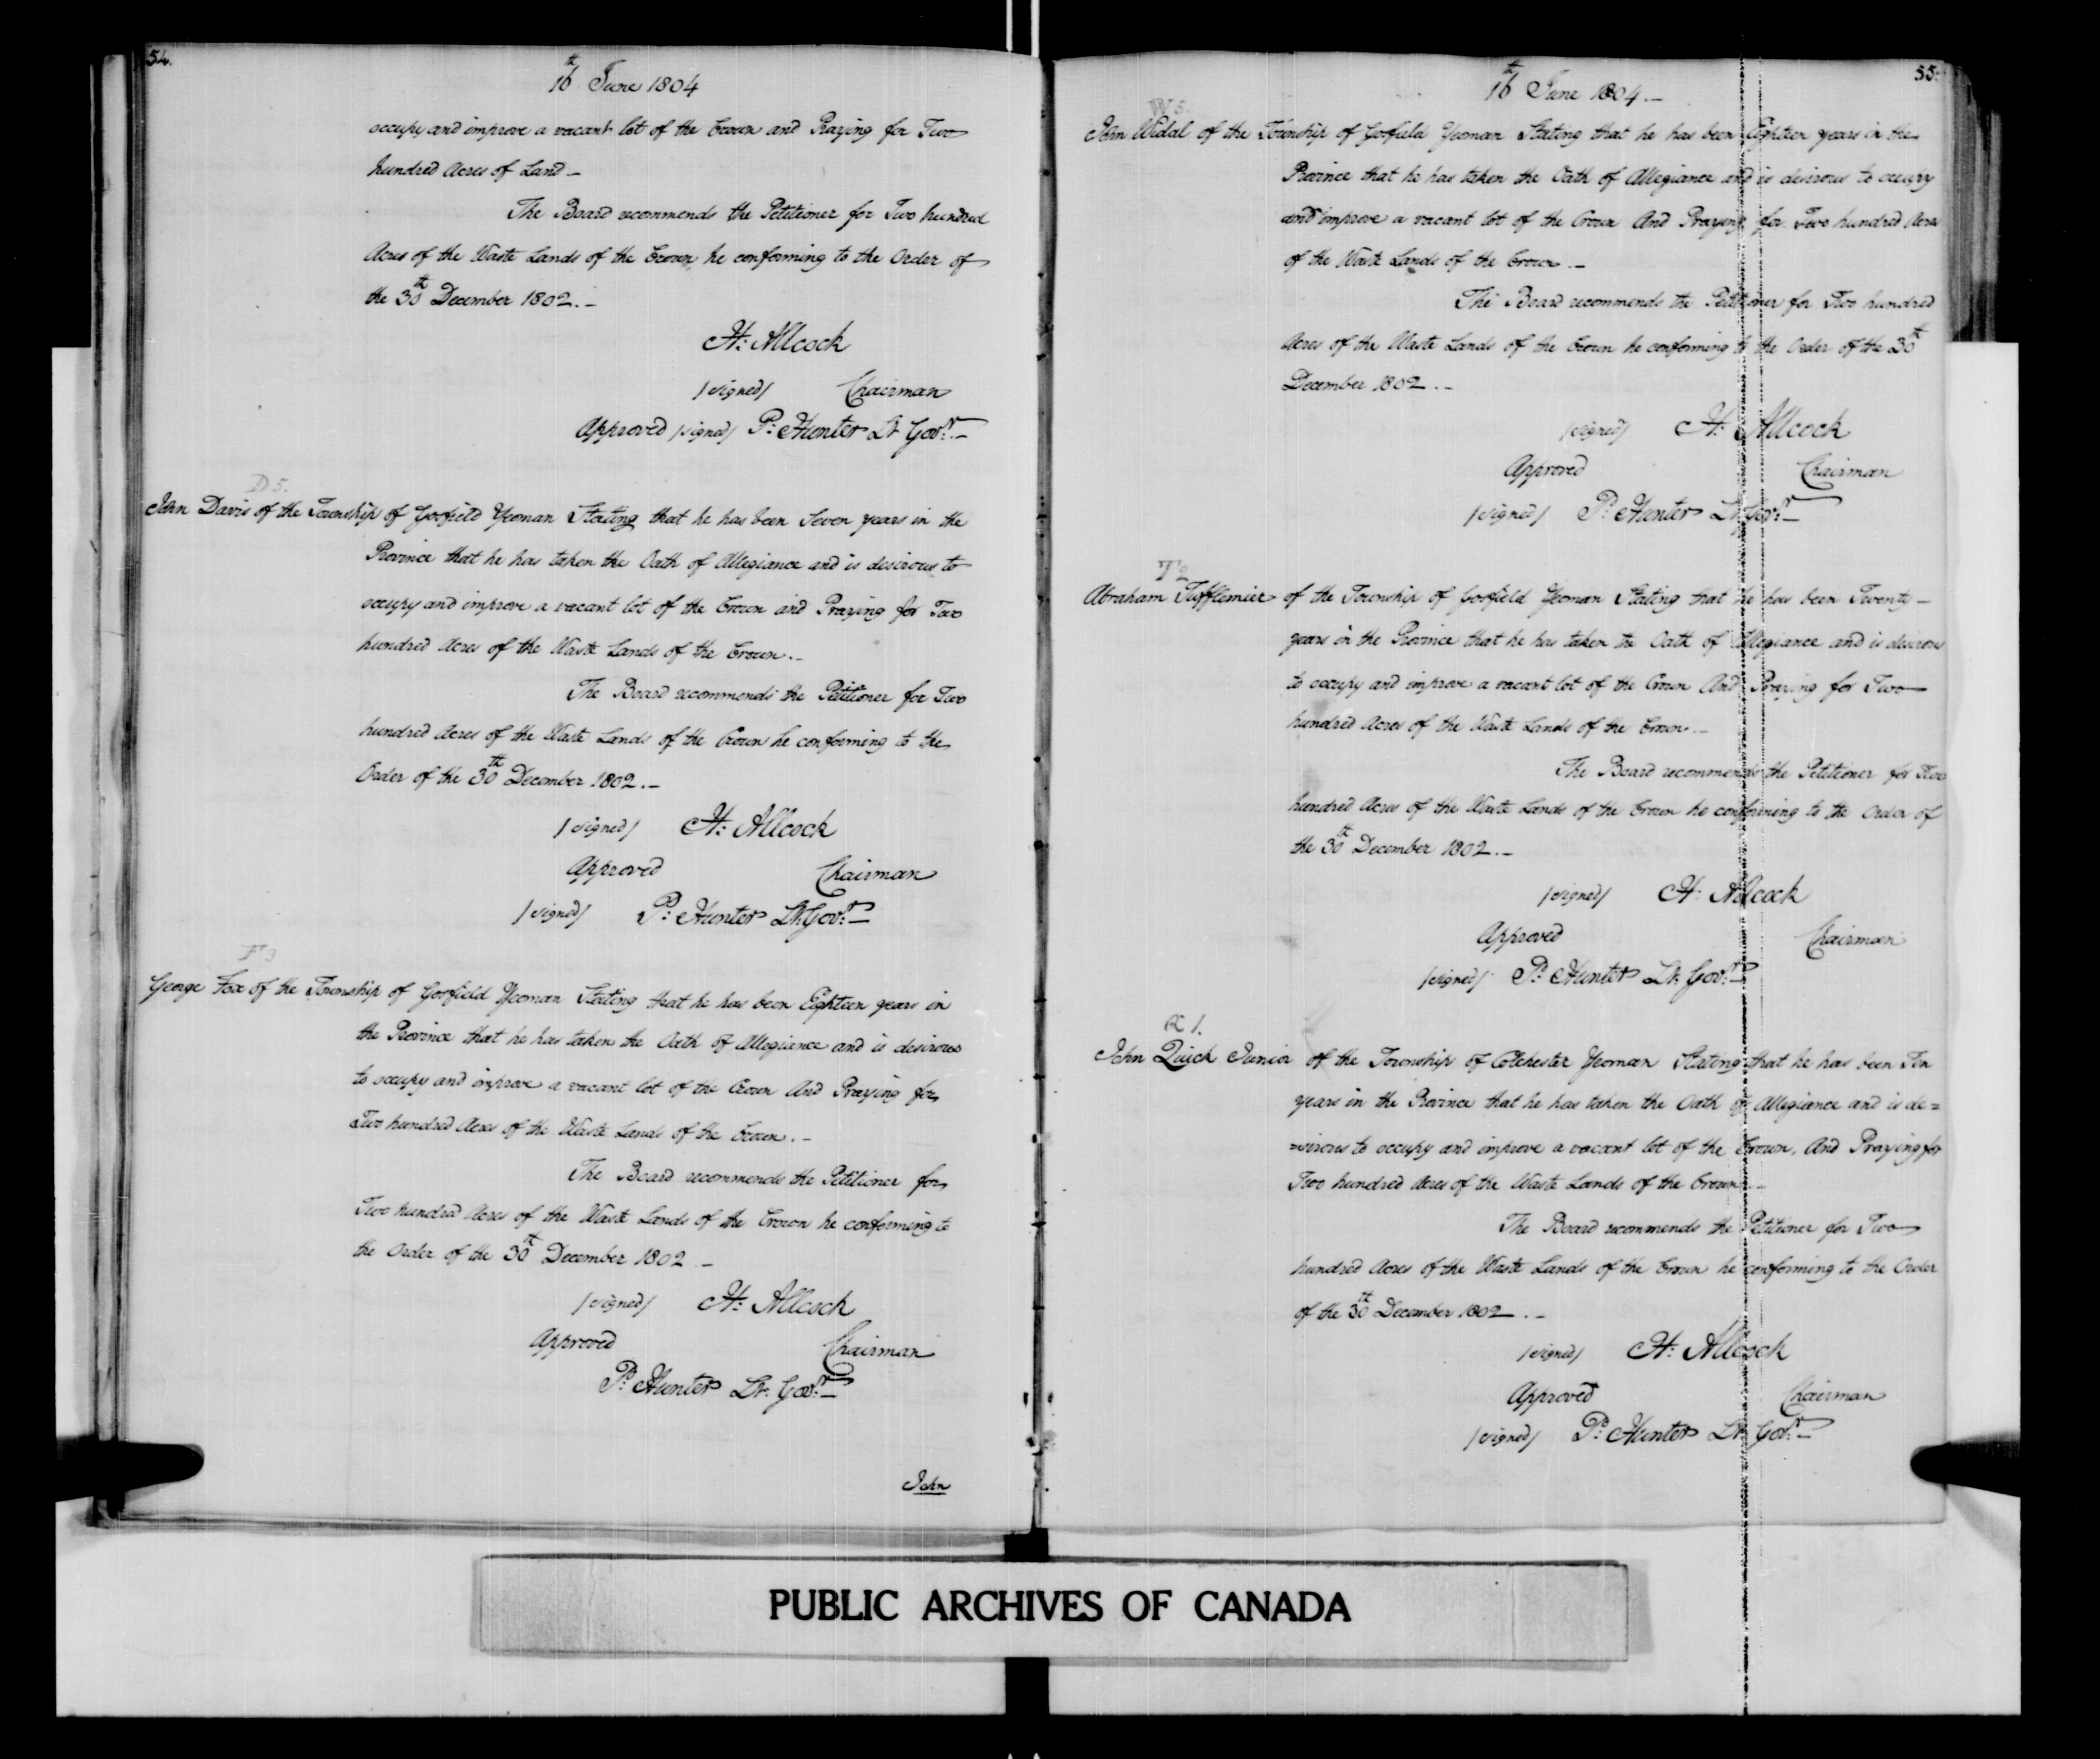 54.
16th June 1804
occupy and improve a vacant lot of the Crown and Praying for Two
hundred Acres of Land —
The Board recommends the Petitioner for Two hundred
Acres of the Waste Lands of the Crown he conforming to the Order of
the 30th December 1802. —
H: Allcock
/signed/ Chairman
Approved /signed/ P: Hunter Lt Govr. —
D 5.
John Davis of the Township of Gosfield Yeoman Stating that he has been Seven years in the
Province that he has taken the Oath of Allegiance and is desirous to
occupy and improve a vacant lot of the Crown and Praying for Two
hundred Acres of the Waste Lands of the Crown. —
The Board recommends the Petitioner for Two
hundred Acres of the Waste Lands of the Crown he conforming to the
Order of the 30th December 1802. —
/signed/ H: Allcock
Approved Chairman
/signed/ P: Hunter Lt: Govr: —
F 3
George Fox of the Township of Gosfield Yeoman Stating that he has been Eighteen years in
the Province that he has taken the Oath of Allegiance and is desirous
to occupy and improve a vacant lot of the Crown And Praying for
Two hundred Acres of the Waste Lands of the Crown. —
The Board recommends the Petitioner for
Two hundred Acres of the Waste Lands of the Crown he conforming to
the Order of the 30th December 1802 —
/signed/ H: Allcock
Approved Chairman
P: Hunter Lt: Govr: —
John
55.
16th June 1804. —
W 5.
John Widal of the Township of Gosfield Yeoman Stating that he has been Eighteen years in the
Province that he has taken the Oath of Allegiance and is desirous to occupy
and improve a vacant lot of the Crown And Praying for Two hundred Acres
of the Waste Lands of the Crown. —
The Board recommends the Petitioner for Two hundred
Acres of the Waste Lands of the Crown he conforming to the Order of the 30th
December 1802. —
/signed/ H: Allcock
Approved Chairman
/signed/ P: Hunter Lt: Govr: —
T 2
Abraham Tufflemier of the Township of Gosfield Yeoman Stating that he has been Twenty —
years in the Province that he has taken the Oath of Allegiance and is desirous
to occupy and improve a vacant lot of the Crown And Praying for Two
hundred Acres of the Waste Lands of the Crown. —
The Board recommends the Petitioner for Two
hundred Acres of the Waste Lands of the Crown he conforming to the Order of
the 30th December 1802. —
/signed/ H: Allcock
Approved Chairman
/signed/ P: Hunter Lt: Govr: —
1.
John Quick Junior of the Township of Colchester Yeoman Stating that he has been Ten
years in the Province that he has taken the Oath of Allegiance and is de=
=sirous to occupy and improve a vacant lot of the Crown. And Praying for
Two hundred Acres of the Waste Lands of the Crown. —
The Board recommends the Petitioner for Two
hundred Acres of the Waste Lands of the Crown he conforming to the Order
of the 30th December 1802. —
/signed/ H: Allcock
Approved Chairman
/signed/ P: Hunter Lt: Govr: —
PUBLIC ARCHIVES OF CANADA